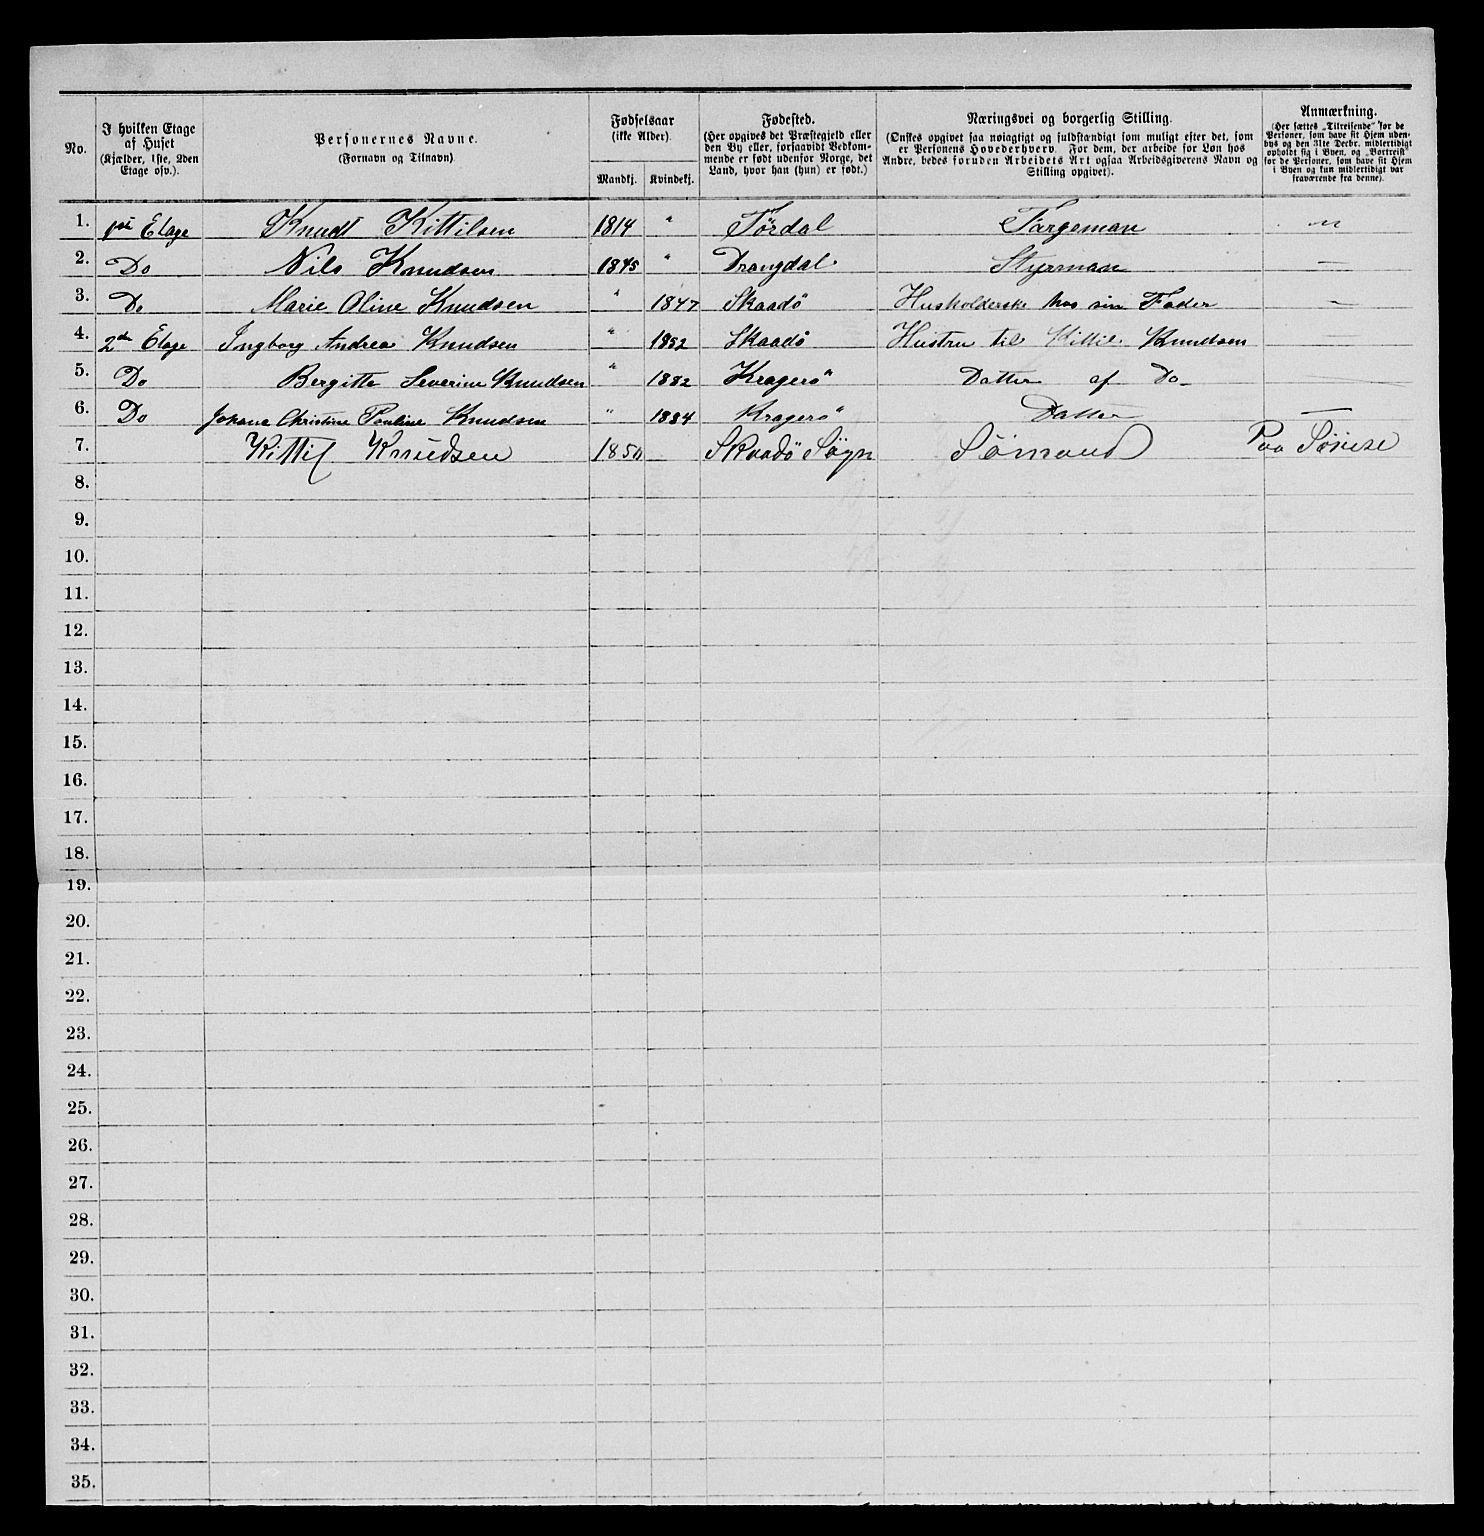 No.
I hvilken Etage af Huset (Kjælder, 1ste, 2den Etage osv.).
Personernes Navne. (Fornavn og Tilnavn)
Fødselsaar (ikke Alder). Mandkj. Kvindekj.
Fødested. (Her opgives det Præstegjeld eller den By eller, forsaavidt Vedkommende er født udenfor Norge, det Land, hvor han (hun) er født.)
Næringsvei og borgerlig Stilling. (Ønskes opgivet saa nøiagtigt og fuldstændigt som muligt efter det, som er Personens Hovederhverv. For dem, der arbeide for Løn hos Andre, bedes foruden Arbeidets Art ogsaa Arbeidsgiverens Navn og Stilling opgivet).
Anmærkning. (Her sættes „Tilreisende" for de Personer, som have sit Hjem udenbys og den 31te Decbr. midlertidigt opholdt sig i Byen, og „Bortreist" for de Personer, som have sit Hjem i Byen og kun midlertidigt var fraværende fra denne).
1. 1ste Etage Knudt Kittilsen 1814 " Tørdal Færgeman "
2. Do Nils Knudsen 1845 " Drangdal Styrman —
3. Do Marie Oline Knudsen " 1847 Skaadö Husholderske hos sin Fader —
4. 2den Etage Ingborg Andrea Knudsen " 1852 Skaadö Hustru til Kittil Knudsen —
5. Do Bergitte Severine Knudsen " 1882 Kragerö Datter af Do —
6. Do Johane Christine Pauline Knudsen " 1884 Kragerö Datter —
7. Kittil Knudsen 1850 Skaadö Sögn Sömand Paa Söreise
8.
9.
10.
11.
12.
13.
14.
15.
16.
17.
18.
19.
20.
21.
22.
23.
24.
25.
26.
27.
28.
29.
30.
31.
32.
33.
34.
35.